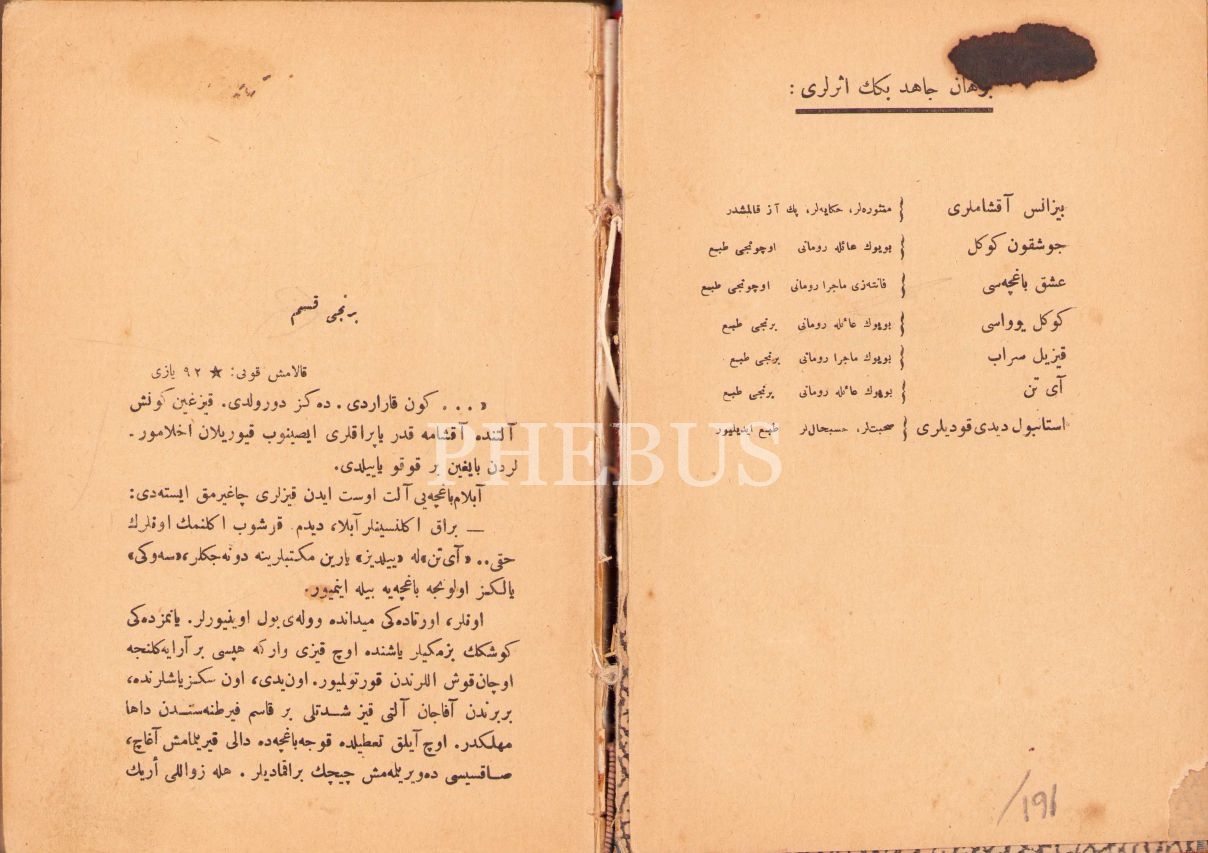 برهان جاهد بكك اثرلری :
بیزانس آقشاملری { منثوره‌لر، حكایه‌لر، پك آز قالمشدر
جوشقون كوكل { بویوك عائله رومانی اوچونجی طبع
عشق باغچه‌سی { فانته‌زی ماجرا رومانی اوچونجی طبع
كوكل یوواسی { بویوك عائله رومانی برنجی طبع
قیزیل سراب { بویوك ماجرا رومانی برنجی طبع
آی تن { بویوك عائله رومانی برنجی طبع
استانبول دیدی قودیلری { صحبتلر، حسبحاللر طبع ایدیلیور
191
برنجی قسم
قالامش قویی: ★ ٩٢ یازی
«... كون قاراردی. ده‌كز دورولدی. قیزغین كونش
آلتنده آقشامه قدر یاپراقلری ایصینوب قیوریلان اخلامور.
لردن بایغین بر قوقو یاییلدی.
آبلام باغچه‌یی آلت اوست ایدن قیزلری چاغیرمق ایسته‌دی:
— براق اكلنسینلر آبلا، دیدم. قوشوب اكلنمك اونلرك
حقی.. «آی تن» له «ییلدیز» یارین مكتبلرینه دونه‌جكلر، «سه‌وكی»
یالكز اولونجه باغچه‌یه بیله اینمیور.
اونلر، اورتاده‌كی میدانده ووله‌ی بول اوینیورلر. یانمزده‌كی
كوشكك بزمكیلر یاشنده اوچ قیزی وار كه هپسی بر آرایه كلنجه
اوچان قوش اللرندن قورتولمیور. اون یدی، اون سكز یاشلرنده،
بربرندن آفاجان آلتی قیز شدتلی بر قاسم فیرطنه‌سندن داها
مهلكدر. اوچ آیلق تعطیلده قوجه باغچه‌ده دالی قیریلمامش آغاچ،
صاقسیسی ده‌ویریلمه‌مش چیچك براقمادیلر. هله زواللی أریك
PHEBUS